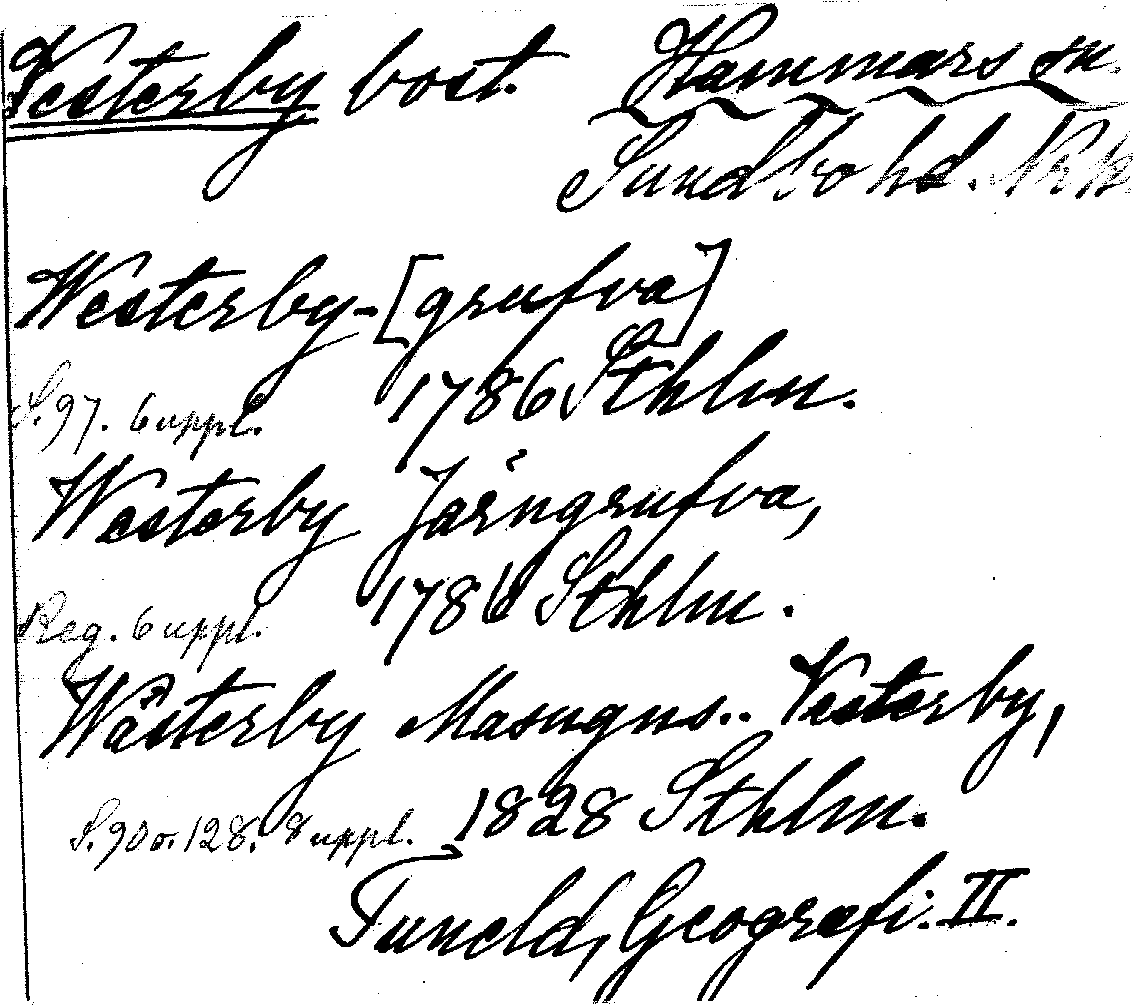 Vesterby bost. Hammars sn.
Sundbo hd. Nrk.
Westerby-[grufva]
S. 97. 6 uppl. 1786 Sthlm.
Westerby Järngrufva,
Reg. 6 uppl. 1786 Sthlm.
Wästerby Masugns.. Vesterby,
S. 90 o. 128. 8 uppl. 1828 Sthlm.
Tuneld, Geografi. II.